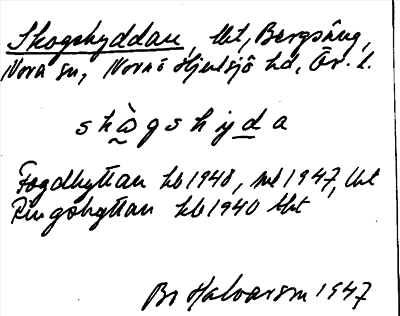 Skogshyddan, lht, Bergsäng,
Nora sn, Nora o Hjulsjö hd, Ör. l.
skò̰gshyd̲a
Fogdhyttan hb 1948, ml 1947, lht
Ringshyttan hb 1940 lht
Br Halvarson 1947